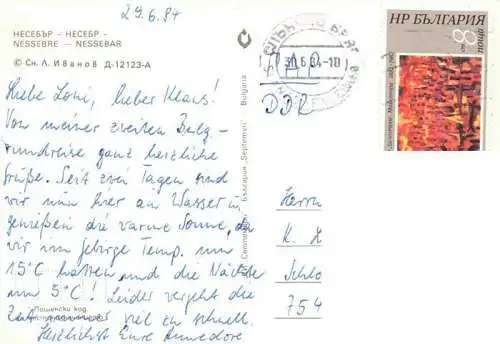 29.6.84
НЕСЕБЪР — НЕСЕБР —
NESSEBRE — NESSEBAR
© Сн. Л. Иванов Д-12123-А
Liebe Loni, lieber Klaus!
Von meiner zweiten Bulg.-
rundreise ganz herzliche
Grüße. Seit zwei Tagen sind
wir nun hier am Wasser u.
genießen die warme Sonne, da
wir im Gebirge Temp. um
15°C hatten und die Nächte
um 5°C! Leider vergeht die
Zeit immer viel zu schnell.
Herzlichst Eure Annedore
Пощенски код
България
"Septemvri" Bulgaria
СЛЪНЧЕВ БРЯГ
30.6.84-10
PAR AVION
DDR
НР БЪЛГАРИЯ
поща
8 ст.
Herrn
K. H
Schlo
754